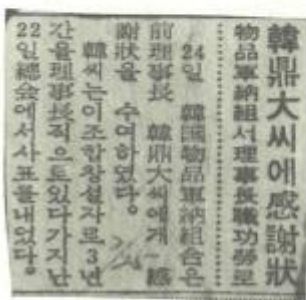 韓鼎大씨에感謝狀
物品軍納組서理事長職功勞로
24일 韓國物品軍納組合은
前理事長 韓鼎大씨에게 感
謝狀을 수여하였다.
韓씨는이조합창설자로3년
간을理事長직으로있다가지난
22일總会에서사표를내었다.